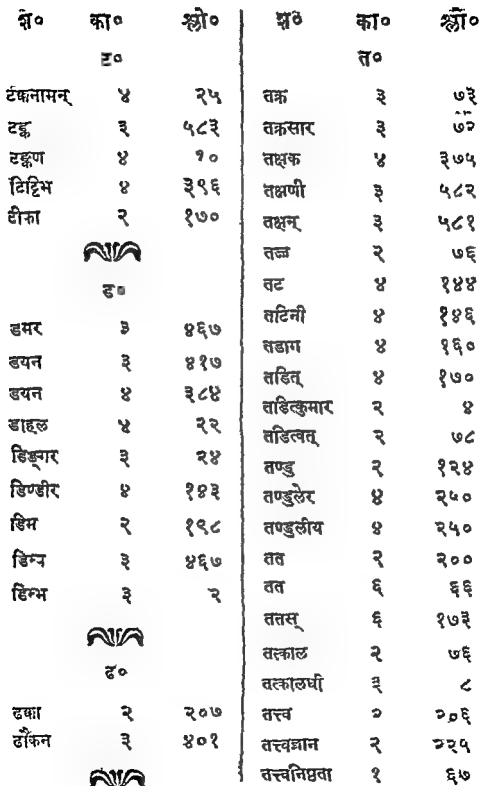 श० का० श्लो०
ट०
टंकनामन् ४ २५
टङ्क ३ ५८३
टङ्कण ४ १०
टिट्टिभ ४ ३९६
टीका २ १७०
ड०
डमर ३ ४६७
डयन ३ ४१७
डयन ४ ३८४
डाहल ४ २२
डिङ्गर ३ २४
डिण्डीर ४ १४३
डिम २ १९८
डिम्ब ३ ४६७
डिम्भ ३ २
ढ०
ढक्का २ २०७
ढौकन ३ ४०१
श० का० श्लो०
त०
तक्र ३ ७३
तक्रसार ३ ७२
तक्षक ४ ३७५
तक्षणी ३ ५८२
तक्षन् ३ ५८१
तज्ज्ञ २ ७६
तट ४ १४४
तटिनी ४ १४६
तडाग ४ १६०
तडित् ४ १७०
तडित्कुमार २ ४
तडित्वत् २ ७८
तण्डु २ १२४
तण्डुलेर ४ २५०
तण्डुलीय ४ २५०
तत २ २००
तत ६ ६६
ततस् ६ १७३
तत्काल २ ७६
तत्कालधी ३ ८
तत्त्व २ २०६
तत्त्वज्ञान २ २२५
तत्त्वनिष्ठता १ ६७